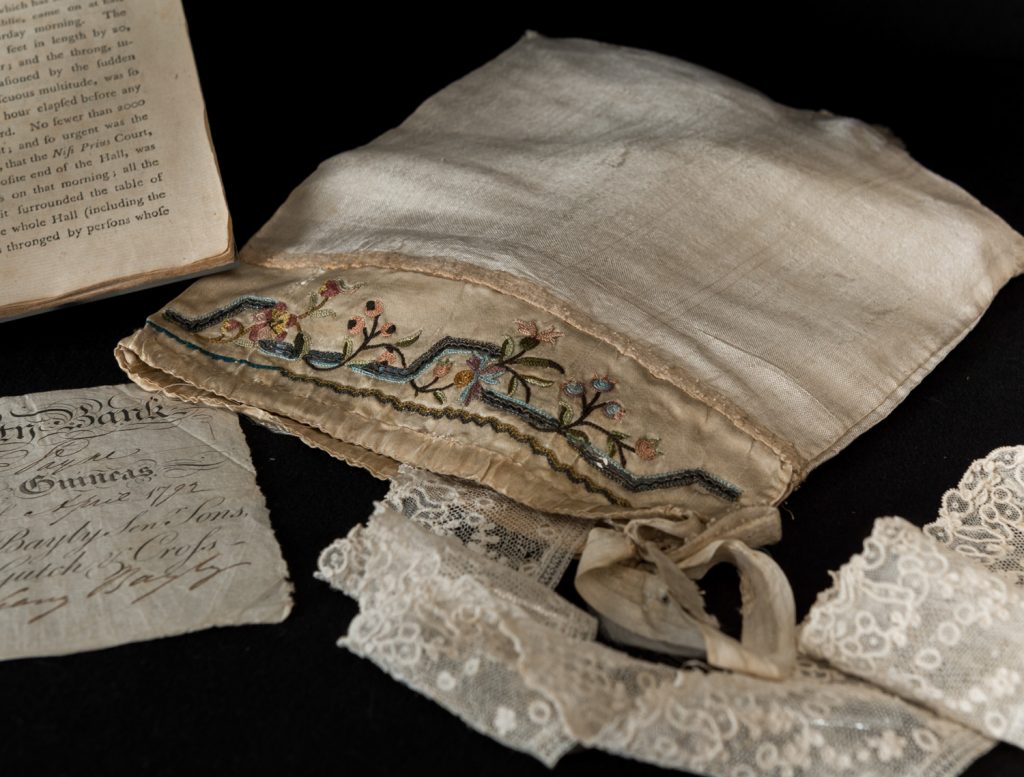 which has
ublic, came on at half
urday morning. The
feet in length by 20,
r; and the throng, in-
aſioned by the ſudden
ſcuous multitude, was ſo
hour elapſed before any
rd. No fewer than 2000
t; and ſo urgent was the
that the Niſi Prius Court,
oſite end of the Hall, was
s on that morning; all the
it ſurrounded the table of
e whole Hall (including the
thronged by perſons whoſe
ty Bank
Guineas
April 1792
Bayly Son & Sons,
Gutch & Croſs
Bayly